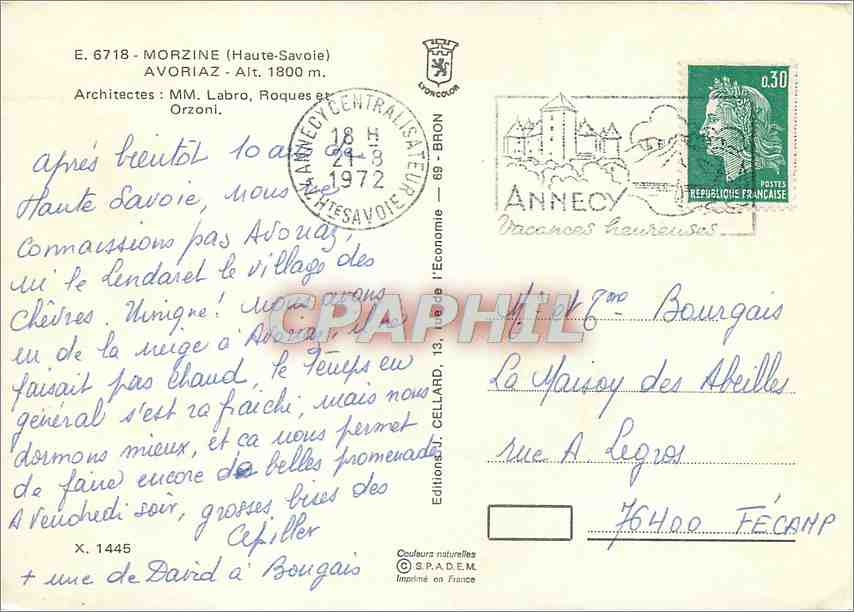 E. 6718 - MORZINE (Haute-Savoie)
AVORIAZ - Alt. 1800 m.
Architectes : MM. Labro, Roques et
Orzoni.
après bientôt 10 ans de
Haute Savoie, nous ne
connaissions pas Avoriaz,
ni le Lendaret le village des
chèvres. Unique! nous avons
eu de la neige à Avoriaz, il ne
faisait pas chaud, le Temps en
général s'est rafraichi, mais nous
dormons mieux, et ca nous permet
de faire encore de belles promenades
A Vendredi soir, grosses bises des
Cepiller
+ une de David à Bougais
X. 1445
LYONCOLOR
Editions J. CELLARD, 13, rue de l'Economie — 69 - BRON
Couleurs naturelles
© S.P.A.D.E.M.
Imprimé en France
ANNECY CENTRALISATEUR
18 H
21-8
1972
HTE SAVOIE
ANNECY
Vacances heureuses
0,30
POSTES
REPUBLIQUE FRANCAISE
CPAPHIL
Mr et Mme Bourgais
La Maison des Abeilles
rue A Legros
76400 FÉCAMP